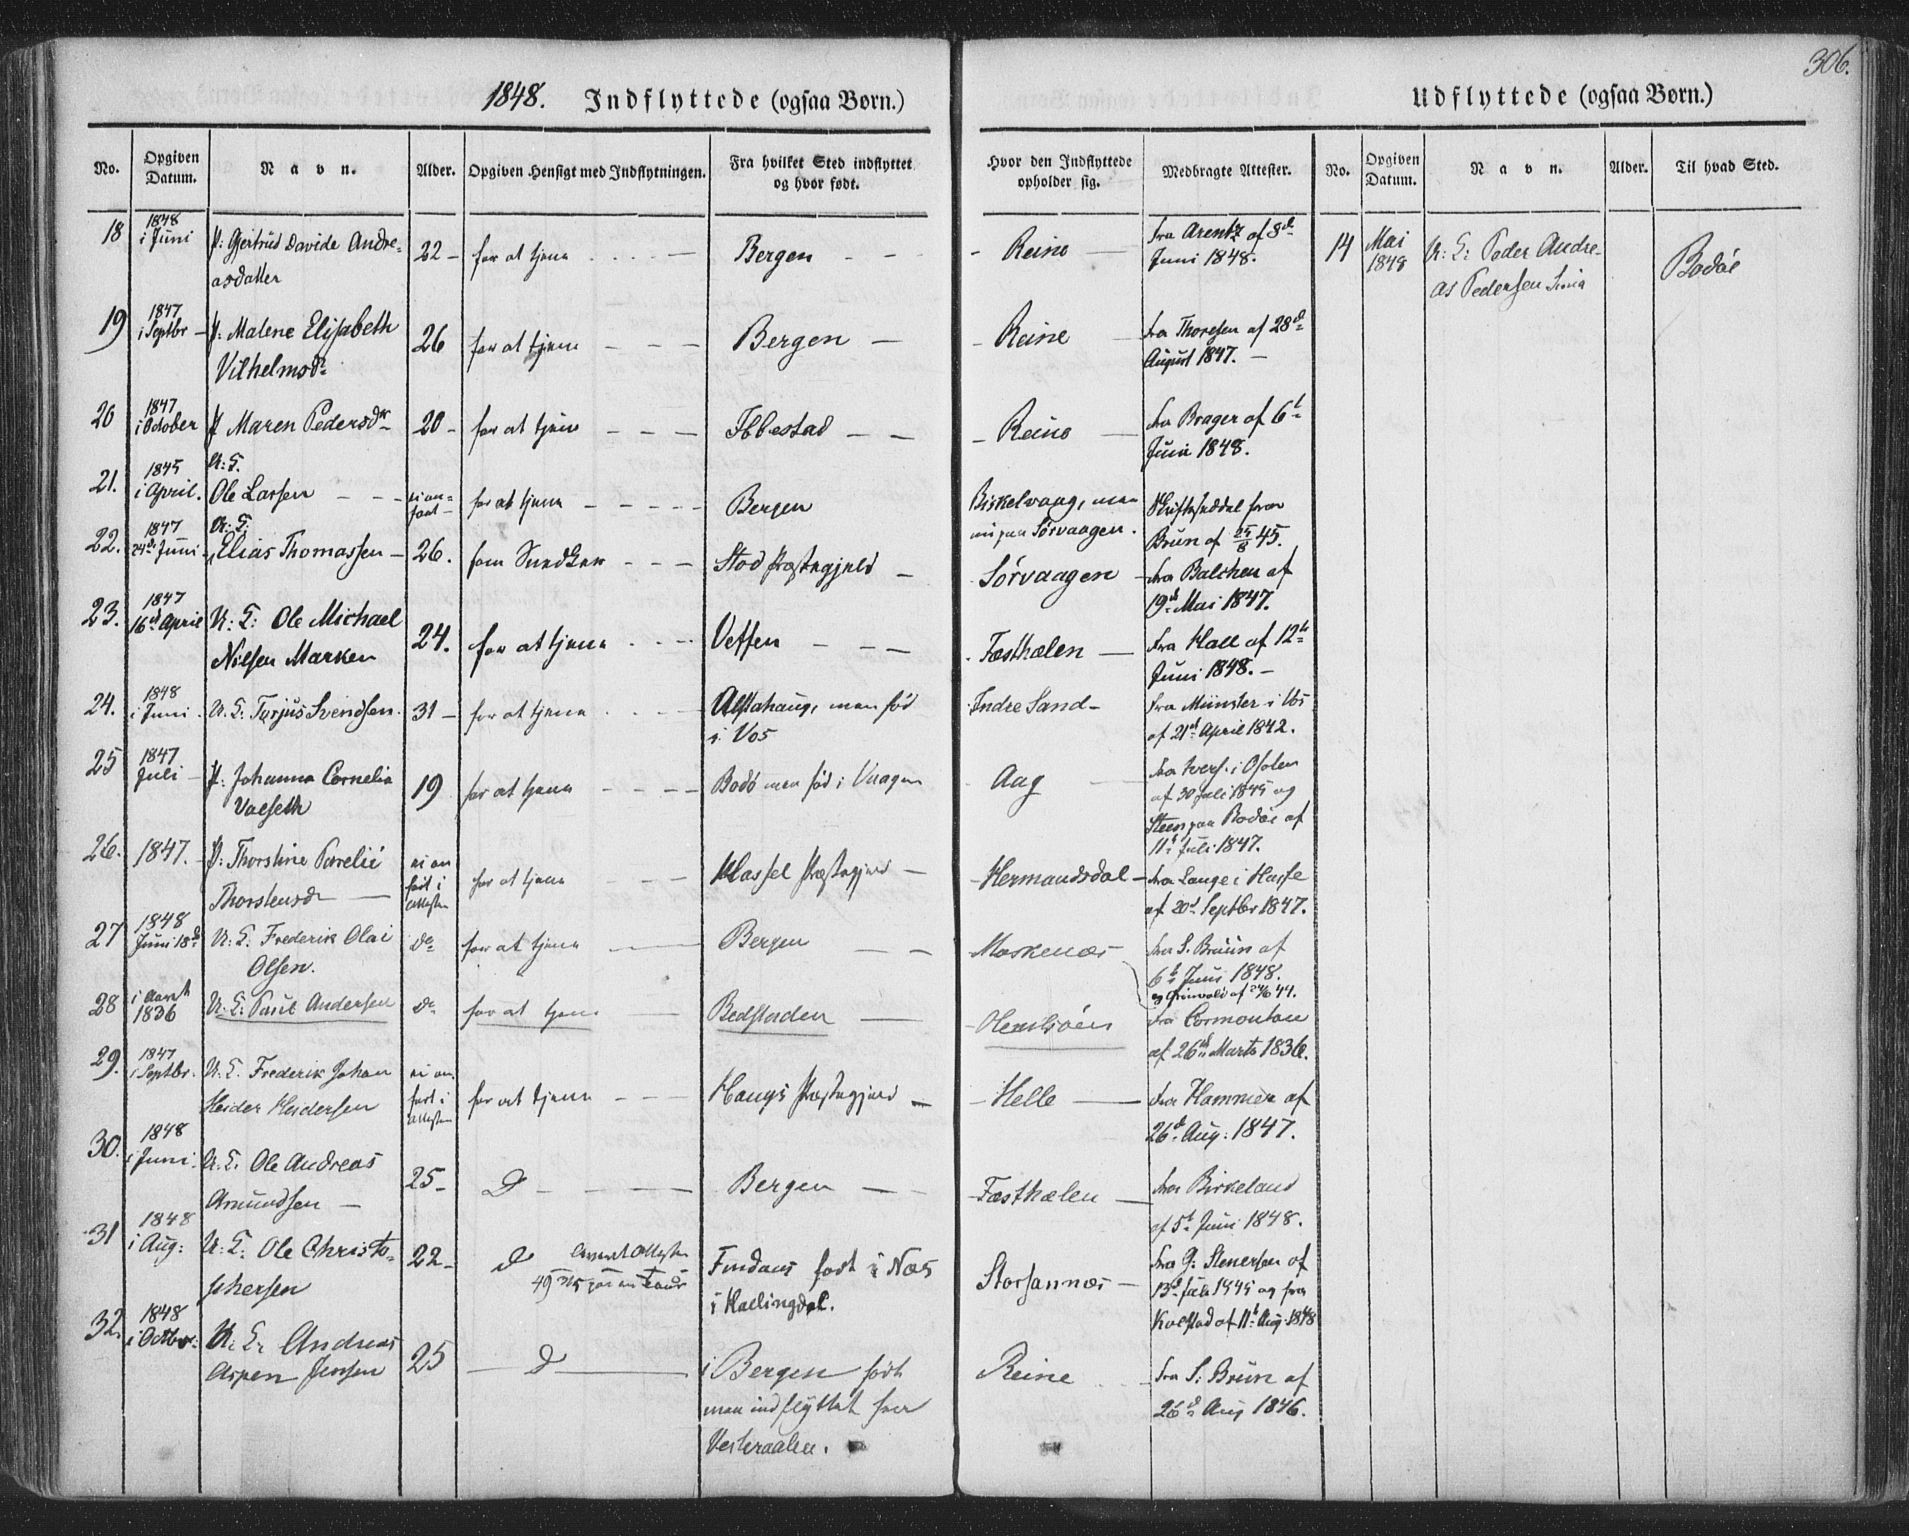 306.
1848. Indflyttede (ogsaa Børn.)
Udflyttede (ogsaa Børn.)
No. Opgiven Datum. Navn. Alder. Opgiven Hensigt med Indflytningen. Fra hvilket Sted indflyttet og hvor født. Hvor den Indflyttede opholder sig. Medbragte Attester. No. Opgiven Datum. Navn. Alder. Til hvad Sted.
18 1848 i Juni P: Gjertrud Davide Andreasdatter 22 - for at tjene Bergen - Reine fra Arentz af 8d Juni 1848.
14 Mai 1848 U: K: Peder Andreas Pedersen Bodøe
19 1847 i Septbr P: Malene Elisabeth Vilhelmsd: 26 for at tjene Bergen - Reine fra Thoresen af 28d August 1847.
20 1847 i October P Maren Pedersdr 20 - for at tjene Ibbestad - Reine fra Brager af 6t Juni 1848.
21. 1845 i April. U: K. Ole Larsen for at tjene Bergen nu paa Sørvaagen. Brun af 25/8 45.
22. 1847 24d Juni U: K: Elias Thomassen 26. som Snedker Stod Præstegjeld Sørvaagen fra Balchen af 19d Mai 1847.
23. 1847 16d April U: K: Ole Michael Nilsen Marken 24. for at tjene Vefsen Fæsthælen fra Hall af 12t Juni 1848.
24. 1848 i Juni U. K: Tarjus Svendsen 31 - for at tjene Alstahaug, men fød i Vos Indre Sand fra Münster i Vos af 21d April 1842.
25 1847 Juli P: Johanna Cornelia Valseth 19 for at tjene Bodø men fød i Vaagen Aag af 30 Juli 1845 og Steen paa Bodøe af 11t Juli 1847.
26. 1847. P: Thorstine Parelie Thorstensd ei anført i Attesten for at tjene Hassel Præstegjeld Hermandsdal fra Lange i Hassel af 20d Septbr 1847.
27 1848 Juni 18d U: K: Frederik Olai Olsen. do for at tjene Bergen Moskenæs fra S. Brüün af 6t Juni 1848.
28 i Aaret 1836 U. K: Paul Andersen do for at tjene Bedstaden Olenilsøen fra Cormontan af 26d Marts 1836.
29. 1847 i Septbr. U. K. Frederik Johan Heider Hendersen ei anført i Attesten for at tjene Haugs Præstegjeld - Helle fra Hammer af 26d Aug: 1847.
30. 1848 i Juni U. K. Ole Andreas Amundsen 25 - D Bergen - Fæsthælen fra Birkeland af 5t Juni 1848.
31 1848 i Aug: U. K: Ole Christophersen 22 - D Findaas født i Næs i Hallingdal. Storsannæs fra G: Stenersen af 13d Juli 1845 og fra Kolstad af 11t Aug. 1848
32. 1848 i Octbr: U. K: Andreas Aspen Jensen 25 D i Bergen født men indflyttet fra Vesteraalen. Reine fra S: Brün af 26d Aug 1846.